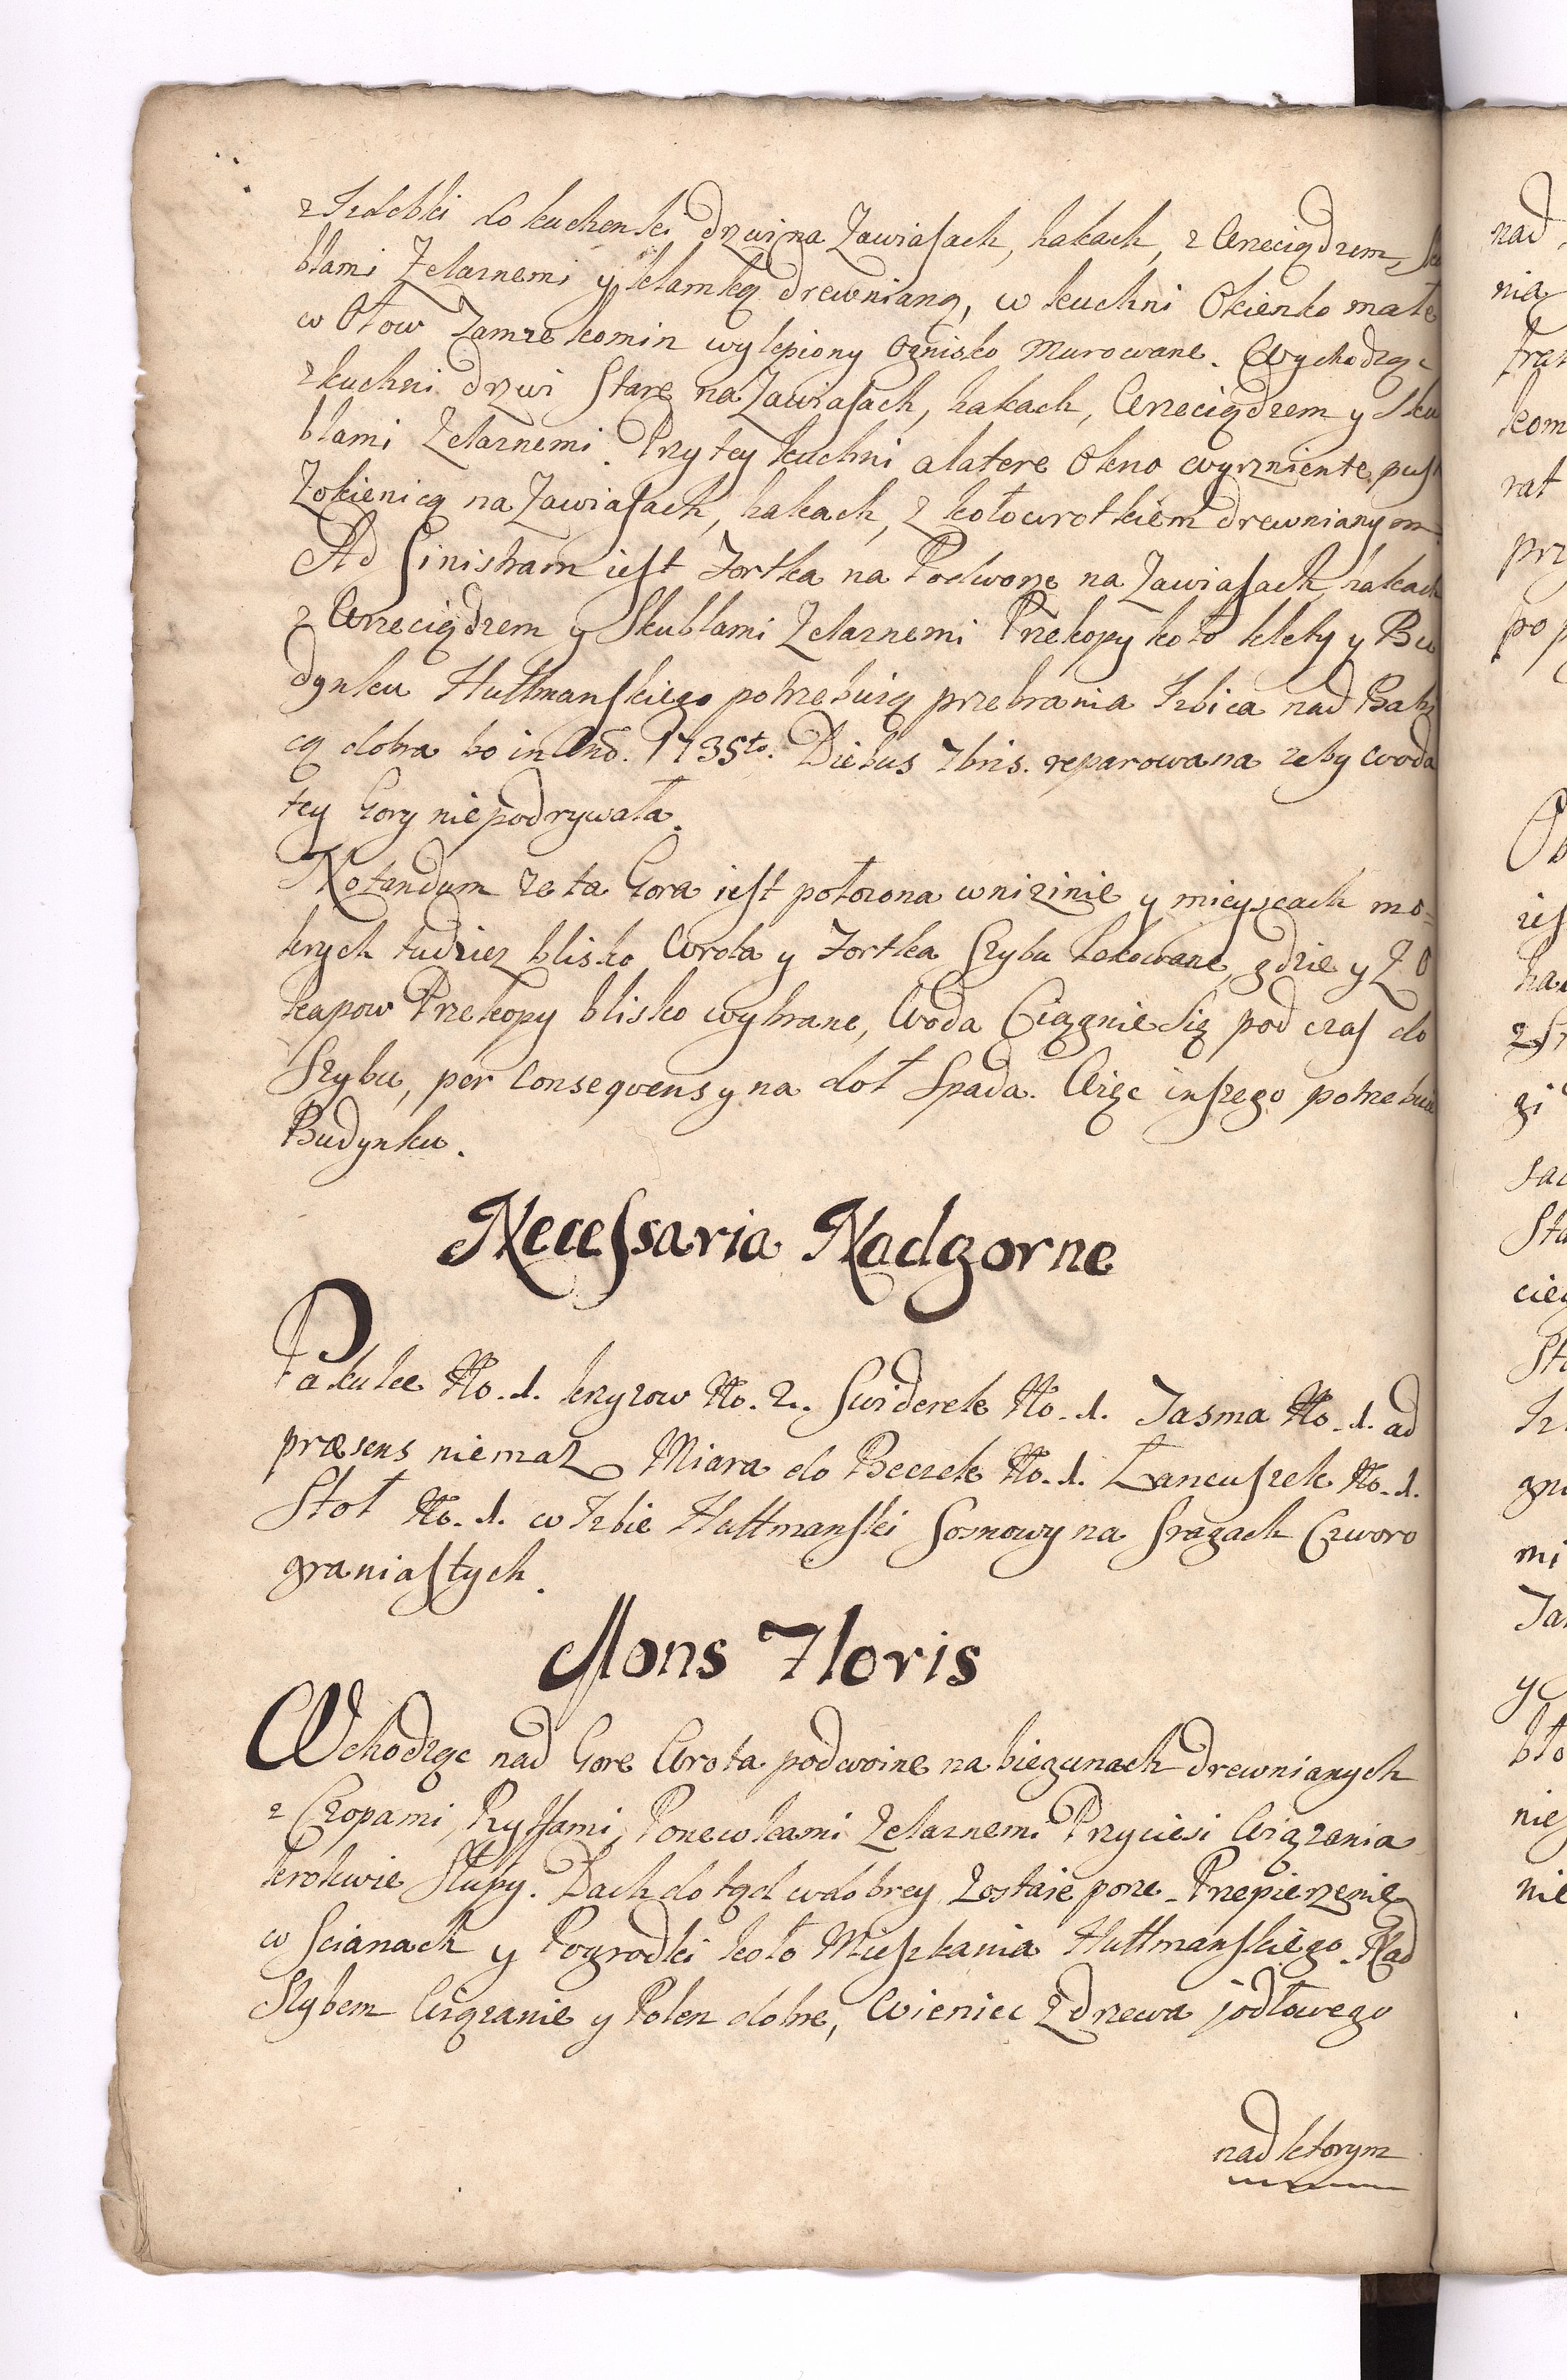 z Izdebki do kuchenki drzwi na Zawiasach, hakach, z Wrzeciądzem, Sku
blami Zelaznemi y klamką drewnianą, w kuchni Okienko małe
w Ołow Zamze komin wylepiony Ognisko murowane. Wychodząc
z kuchni drzwi Stare na Zawiasach, hakach, Wrzeciądzem y Sku
blami Zelaznemi. Przy tey kuchni a latere Okno wyrzniente puste
Z okienicą na Zawiasach, hakach, z kołowrotkiem drewnianym
Ad Sinistram iest Fortka na Podworze na Zawiasach hakach
z Wrzeciądzem y Skublami Zelaznemi Przekopy koło klety y Bu
dynku Huttmanskiego potrzebuią przebrania Izbica nad Babi
cą dobra bo in Ano. 1735to. Diebus 7bris. reparowana zeby woda
tey Gory niepodrywała.
Notandum ze ta Gora iest położona w nizinie y mieyscach mo-
krych tudziez blisko Wrota y Fortka Szybu lokowane, gdzie y Z O
kapow Przekopy blisko wybrane, Woda Ciągnie Się pod czas do
Szybu, per Conseqvens y na doł Spada. Więc inszego potrzebuie
Budynku.
Necessaria Nadgorne
Pakulce No. 1. krzyzow No. 2. Swiderek No. 1. Tasma No. 1. ad
præsens niemasz Miara do Beczek No. 1. Łancuszek No. 1.
Stoł No. 1. w Izbie Huttmanski Sosnowy na Sragach Czworo
graniastych.
Mons Floris
Wchodząc nad Gore Wrota podwoine na biegunach drewnianych
z Czopami, Ryssami, Ponewkami Zelaznemi Przyciesi Wiązania
krokwie Słupy. Dach dotąd w dobrey Zostaie porze. Przepierzenie
w Scianach y Pogrodki koło Mieszkania Huttmanskiego. Nad
Szybem Wiązanie y Polen dobre, Wieniec Z drzewa jodłowego
nad ktorym